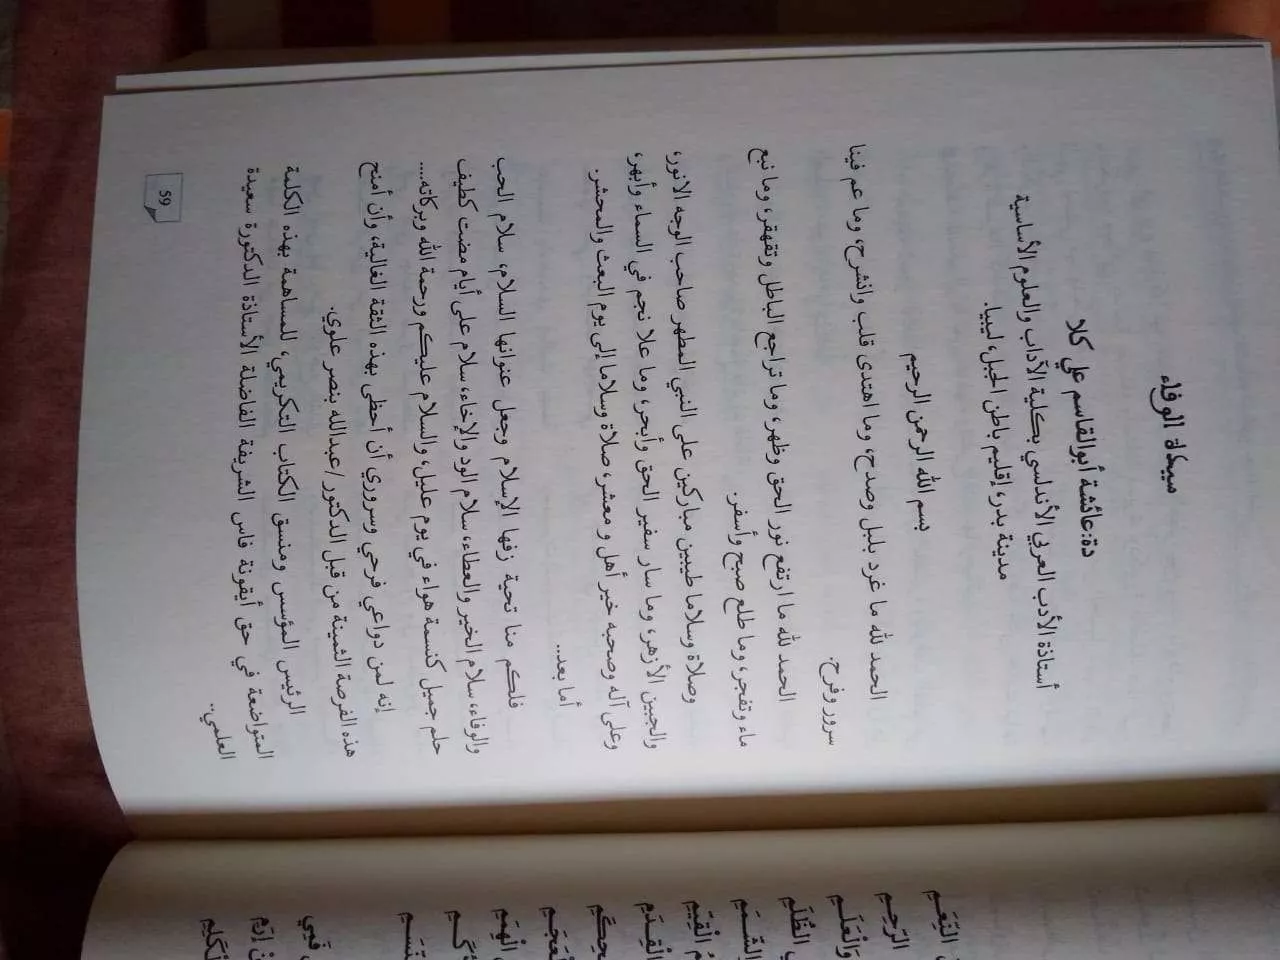 ميداة الوفاء
دة:عائشة أبوالقاسم علي كلا
أستاذة الأدب العربي الأندلسي بكلية الآداب والعلوم الأساسية
مدينة بدر، إقليم باطن الجبل، ليبيا.
بسم الله الرحمن الرحيم
الحمد لله ما غرد بلبل وصدح، وما اهتدى قلب وانشرح، وما عم فينا
سرور وفرح.
الحمد لله ما ارتفع نور الحق وظهر، وما تراجع الباطل وتقهقر، وما نبع
ماء وتفجر، وما طلع صبح وأسفر.
وصلاة وسلاما طيبين مباركين على النبي المطهر صاحب الوجه الانور،
والجبين الأزهر، وما سار سفير الحق وأبحر، وما علا نجم في السماء وأبهر،
وعلى آله وصحبه خير أهل و معشر، صلاة وسلاما إلى يوم البعث والمحشر.
أما بعد..
فلكم منا تحية زفها الإسلام وجعل عنوانها السلام، سلام الحب
والوفاء، سلام الخير والعطاء، سلام الود والإخاء، سلام على أيام مضت كطيف
حلم جميل كنسمة هواء في يوم عليل، والسلام عليكم ورحمة الله وبركاته....
إنه لمن دواعي فرحي وسروري أن أحظى بهذه الثقة الغالية، وأن أمنح
هذه الفرصة الثمينة من قبل الدكتور/عبدالله بنصر علوي.
الرئيس المؤسس ومنسق الكتاب التكريمي، للمساهمة بهذه الكلمة
المتواضعة في حق أيقونة فاس الشريفة الفاضلة الأستاذة الدكتورة سعيدة
العلمي..
59